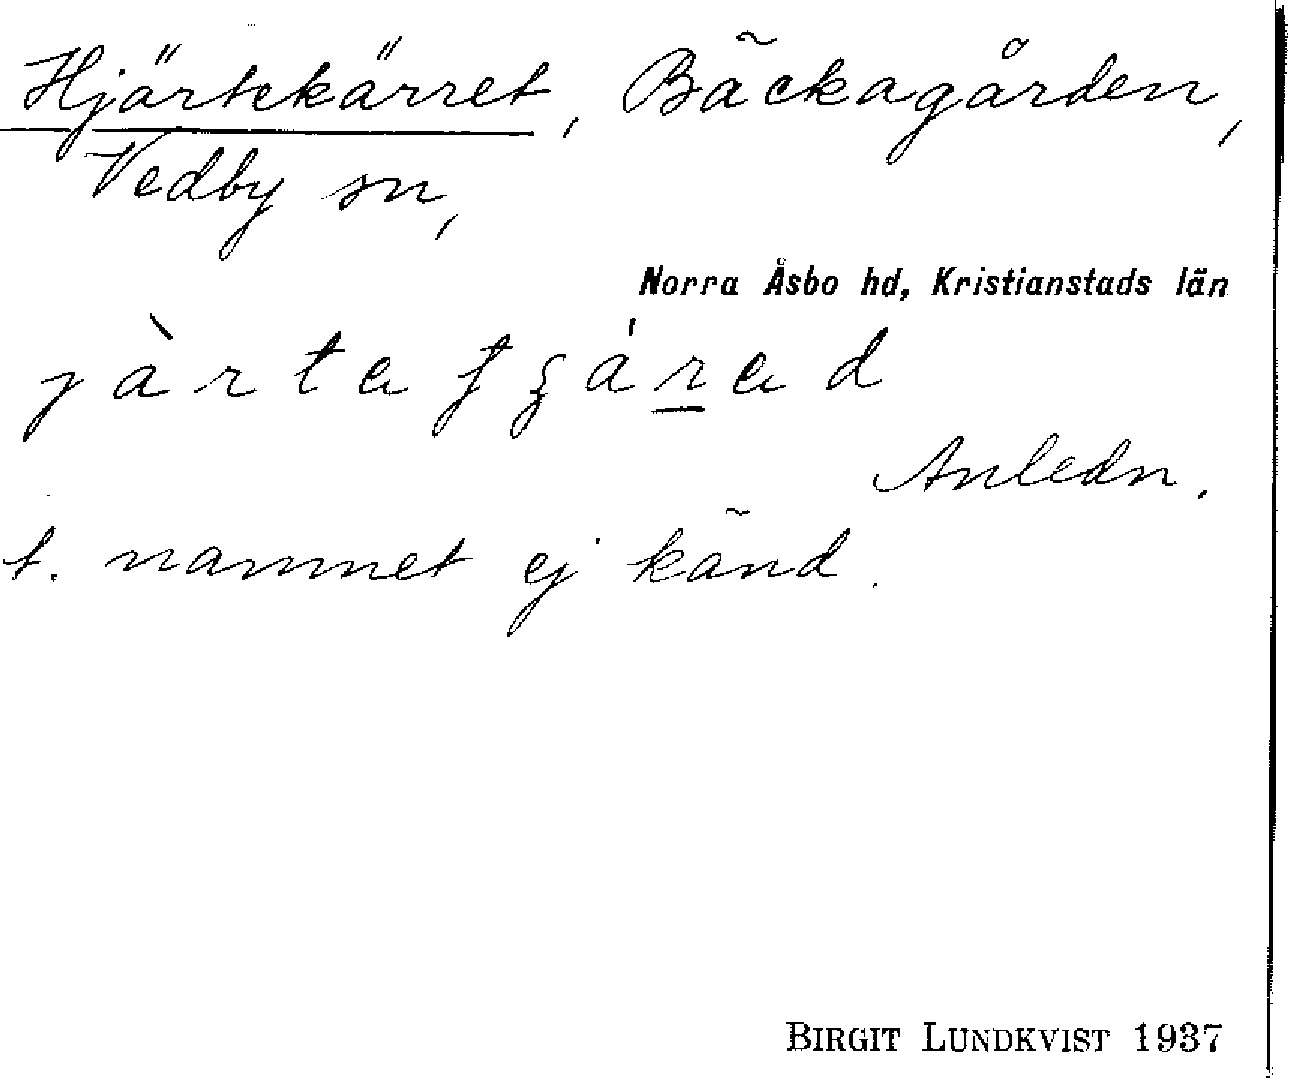 Hjärtekärret, Bäckagården,
Vedby sn,
Norra Åsbo hd, Kristianstads län
Anledn.
t. namnet ej känd.
BIRGIT LUNDKVIST 1937